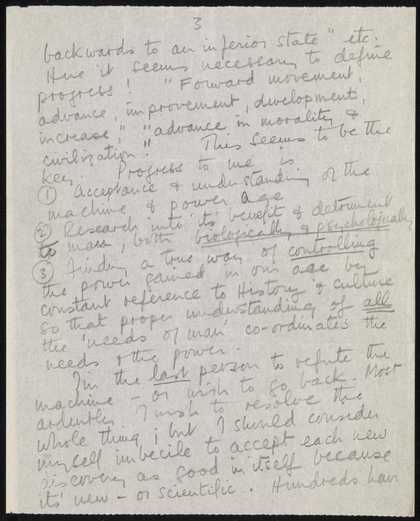 3
backwards to an inferior state" etc.
Here it seems necessary to define
progress! "Forward movement,
advance, improvement, development,
increase," "advance in morality &
civilization". This seems to be the
key. Progress to me is
① Acceptance & understanding of the
machine & power age
② Research into its benefit & detriment
to man, both biologically & psychologically
③ Finding a true way of controlling
the power gained in our age by
constant reference to History & culture
so that proper understanding of all
the 'needs of man' co-ordinates the
needs & the power.
I'm the last person to refute the
machine – or wish to go back. Most
ardently I wish to resolve the
whole thing; but I should consider
myself imbecile to accept each new
discovery as good in itself because
its new – or scientific. Hundreds have